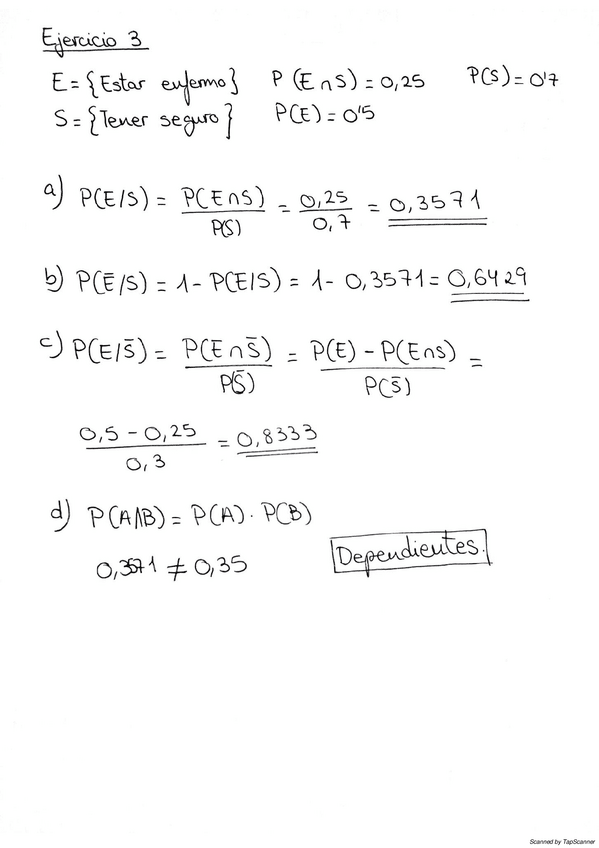 Ejercicio 3
E = {Estar enfermo} P(E∩S) = 0,25 P(S) = 0'7
S = {Tener seguro} P(E) = 0'5
a) P(E/S) = P(E∩S) / P(S) = 0,25 / 0,7 = 0,3571
b) P(Ē/S) = 1 - P(E/S) = 1 - 0,3571 = 0,6429
c) P(E/S̄) = P(E∩S̄) / P(S̄) = P(E) - P(E∩S) / P(S̄) =
0,5 - 0,25 / 0,3 = 0,8333
d) P(A∩B) = P(A) · P(B)
0,3571 ≠ 0,35 Dependientes.
Scanned by TapScanner